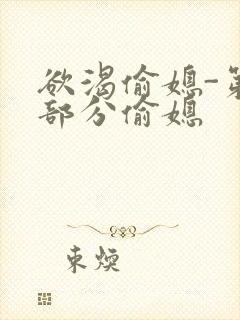 欲渴偷媳-第
部分偷媳
東煐